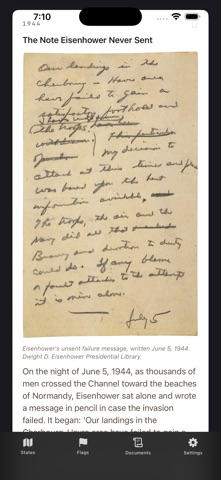 7:10
1944
The Note Eisenhower Never Sent
Our landings in the
Cherbourg - Havre area
have failed to gain a
satisfactory foothold and
the troops
This particular
my decision to
attack at this time and place
was based upon the best
information available,
The troops, the air and the
Navy did all that
Bravery and devotion to duty
could do. If any blame
or fault attaches to the attempt
it is mine alone.
July 5
Eisenhower's unsent failure message, written June 5, 1944.
Dwight D. Eisenhower Presidential Library.
On the night of June 5, 1944, as thousands of
men crossed the Channel toward the beaches
of Normandy, Eisenhower sat alone and wrote
a message in pencil in case the invasion
failed. It began: 'Our landings in the
States
Flags
Documents
Settings